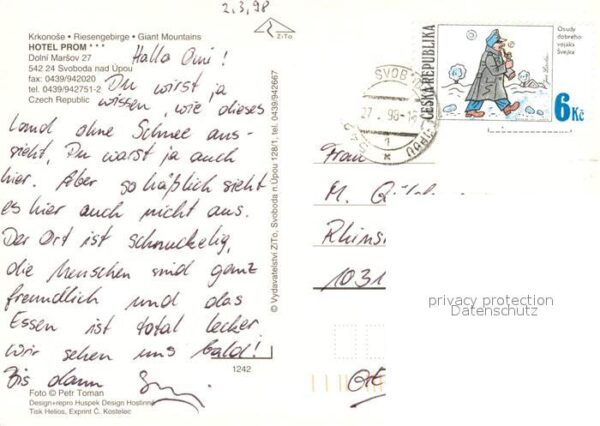 2.3.98
Krkonoše • Riesengebirge • Giant Mountains
HOTEL PROM ***
Dolní Maršov 27
542 24 Svoboda nad Úpou
fax: 0439/942020
tel. 0439/942751-2
Czech Republic
ZiTo
Hallo Omi!
Du wirst ja
wissen, wie dieses
Land ohne Schnee aus-
sieht, Du warst ja auch
hier. Aber so häßlich sieht
es hier auch nicht aus.
Der Ort ist schnuckelig,
die Menschen sind ganz
freundlich und das
Essen ist total lecker.
Wir sehen uns bald!
Bis dann
Foto © Petr Toman
Design+repro Huspek Design Hostinné
Tisk Helios, Exprint Č. Kostelec
1242
© Vydavatelství ZiTo, Svoboda n.Úpou 128/1, tel. 0439/942667
ČESKÁ REPUBLIKA
Osudy
dobrého
vojáka
Švejka
6 Kč
Frau
M.
Rhins
1031
privacy protection
Datenschutz